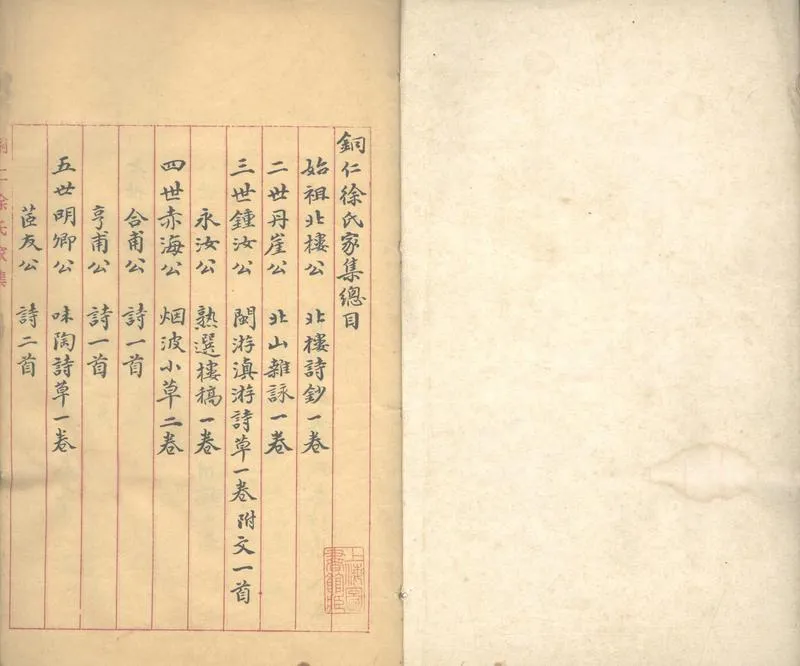 銅仁徐氏家集總目
始祖北樓公 北樓詩鈔一卷
二世丹崖公 北山雜詠一卷
三世鍾汝公 閩游滇游詩草一卷附文一首
永汝公 熟選樓稿一卷
四世赤海公 烟波小草二卷
合甫公 詩一首
亨甫公 詩一首
五世明卿公 味陶詩草一卷
茝友公 詩二首
銅仁徐氏家集
上海圖書館藏